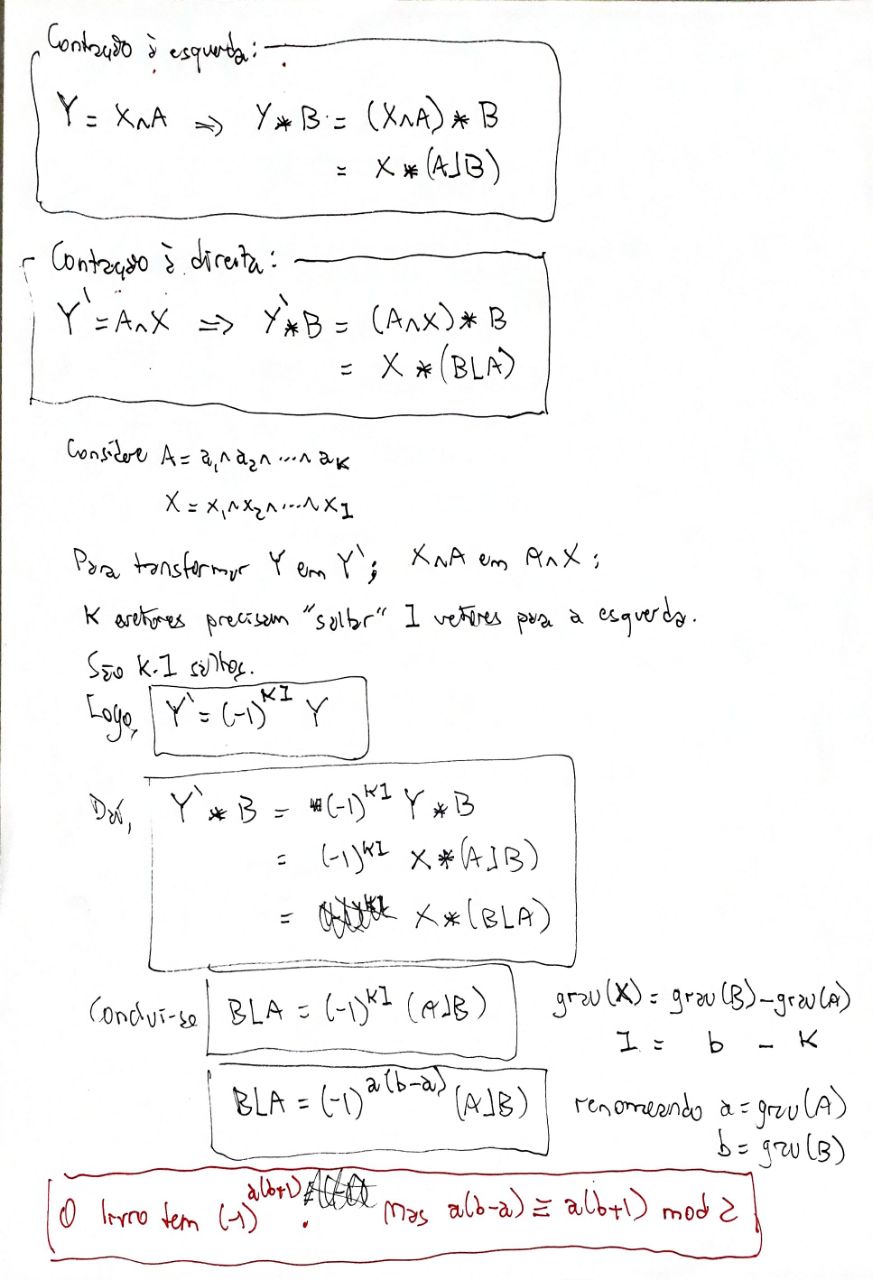 Contração à esquerda:
Y = X∧A ⇒ Y * B = (X∧A) * B
= X * (A⌋B)
Contração à direita:
Y` = A∧X ⇒ Y` * B = (A∧X) * B
= X * (B⌊A)
Considere A = a₁∧a₂∧...∧aₖ
X = x₁∧x₂∧...∧x_I
Para transformar Y em Y`; X∧A em A∧X;
K vetores precisam "saltar" I vetores para a esquerda.
São K.I saltos.
Logo, Y` = (-1)^{KI} Y
Daí, Y` * B = (-1)^{KI} Y * B
= (-1)^{KI} X * (A⌋B)
= X * (B⌊A)
Conclui-se B⌊A = (-1)^{KI} (A⌋B) grau(X) = grau(B) - grau(A)
I = b - K
B⌊A = (-1)^{a(b-a)} (A⌋B) renomeando a = grau(A)
b = grau(B)
O livro tem (-1)^{a(b+1)}. Mas a(b-a) ≡ a(b+1) mod 2